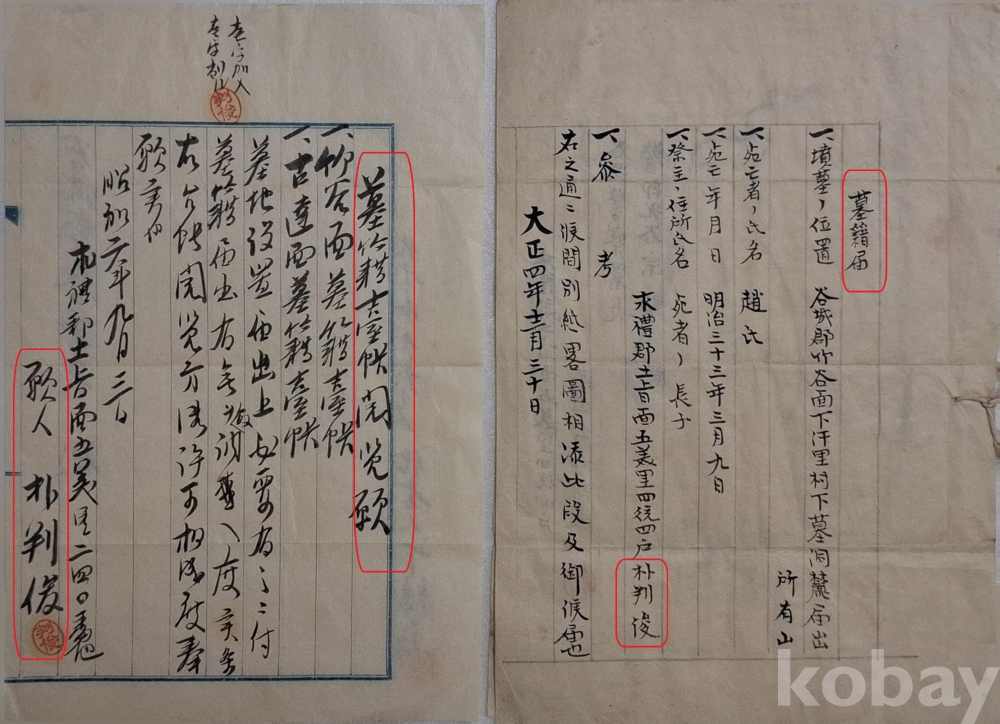 壱字加入
壱字削除
判俊
墓籍台帳閲覧願
一、竹谷面墓籍台帳
一、古達面墓籍台帳
墓地設置届出上必要有之ニ付
墓籍届出有無
右台帳閲覧方御許可相成度奉
願候也
昭和六年九月三日
求礼郡土旨面五美里二四〇番地
願人 朴判俊
判俊
墓籍届
一、墳墓ノ位置 谷城郡竹谷面下汗里村下墓洞麓届出
所有山
一、死亡者ノ氏名 趙氏
一、死亡年月日 明治三十三年三月九日
一、祭主ノ住所氏名 死者ノ長子
求禮郡土旨面五美里四統四戸朴判俊
一、参考
右之通ニ候間別紙畧圖相添此段及御候届也
大正四年十二月三十日
kobay